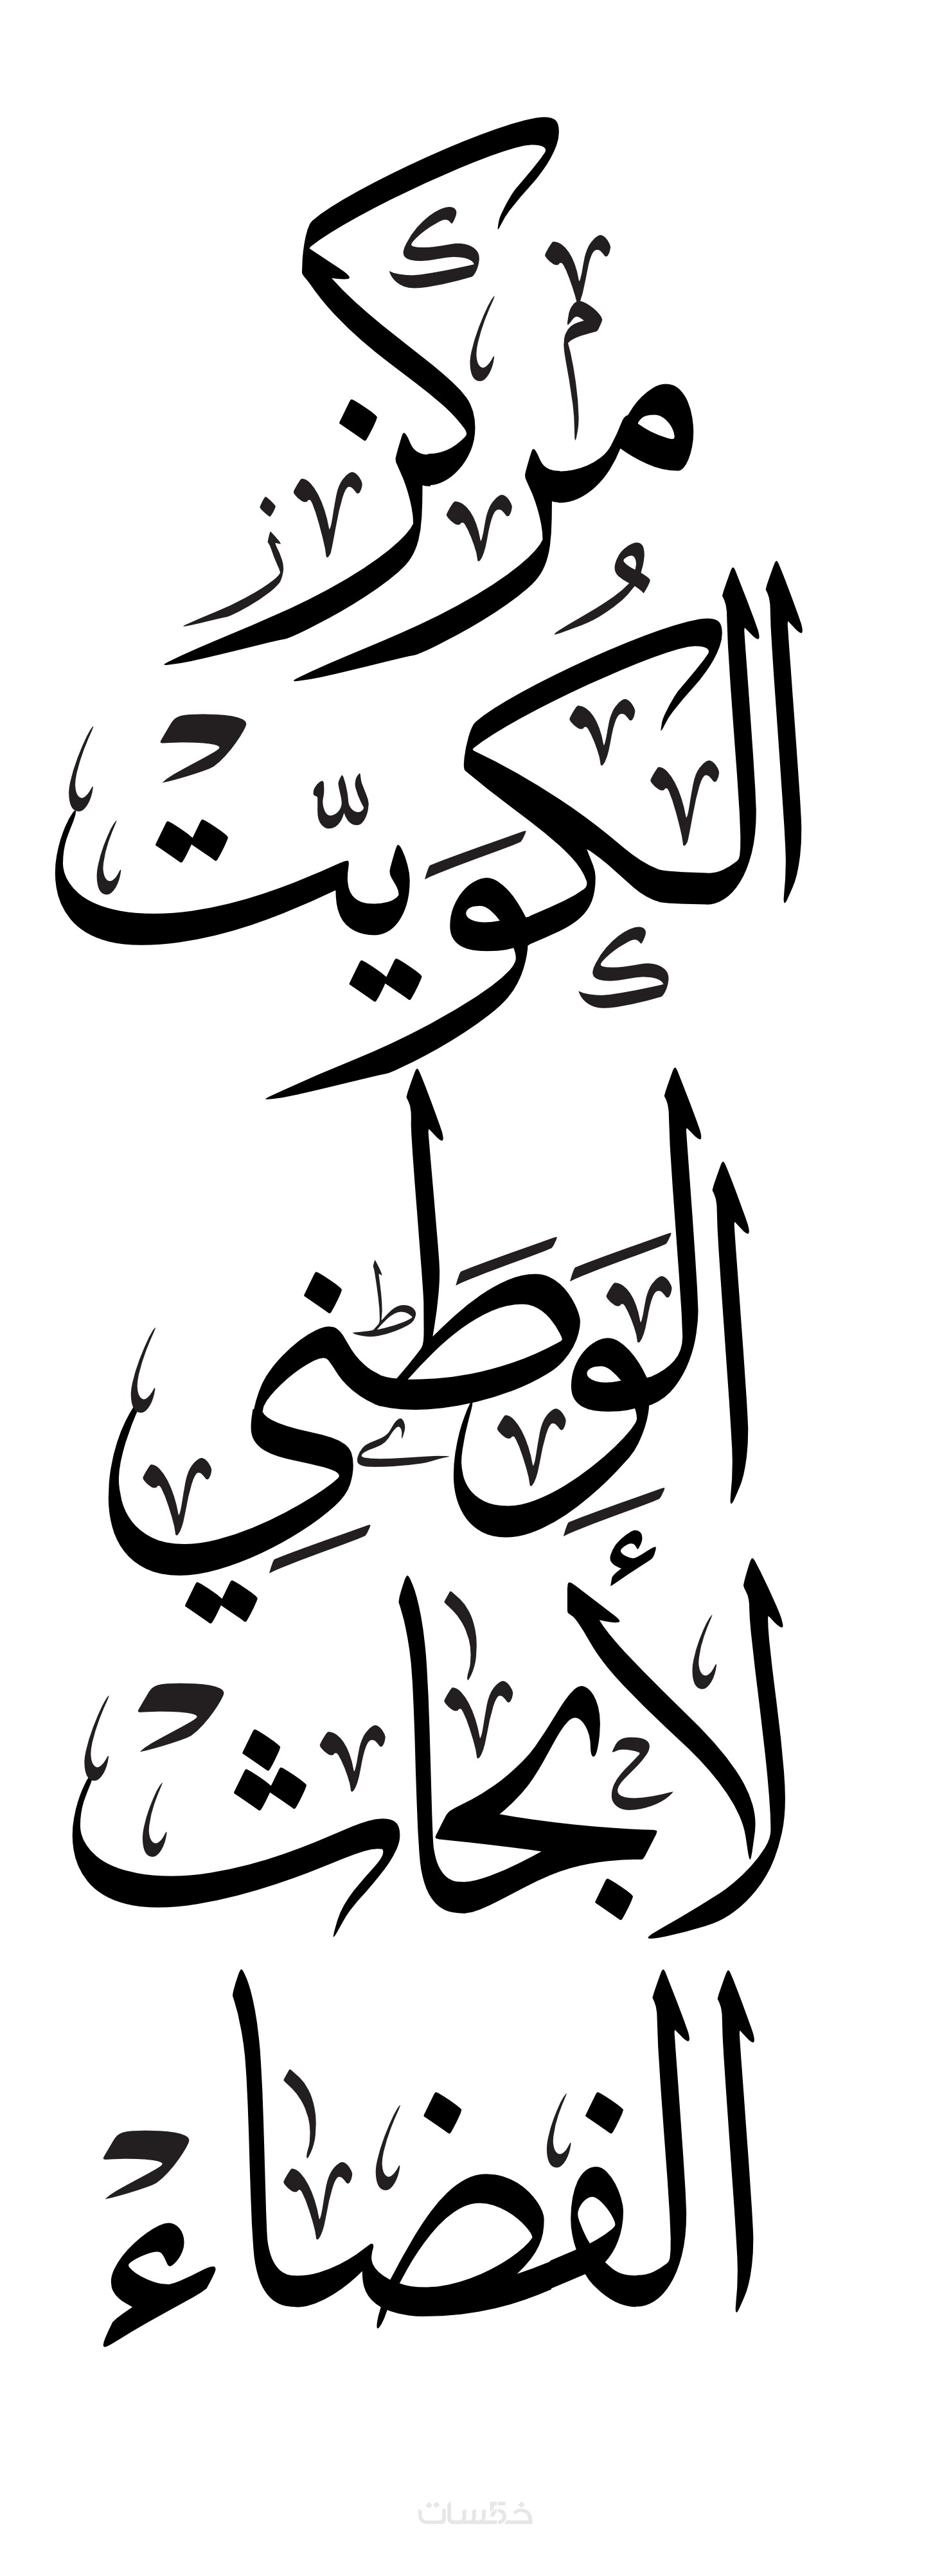 مركز
الكويت
الوطني
لأبحاث
الفضاء
خمسات